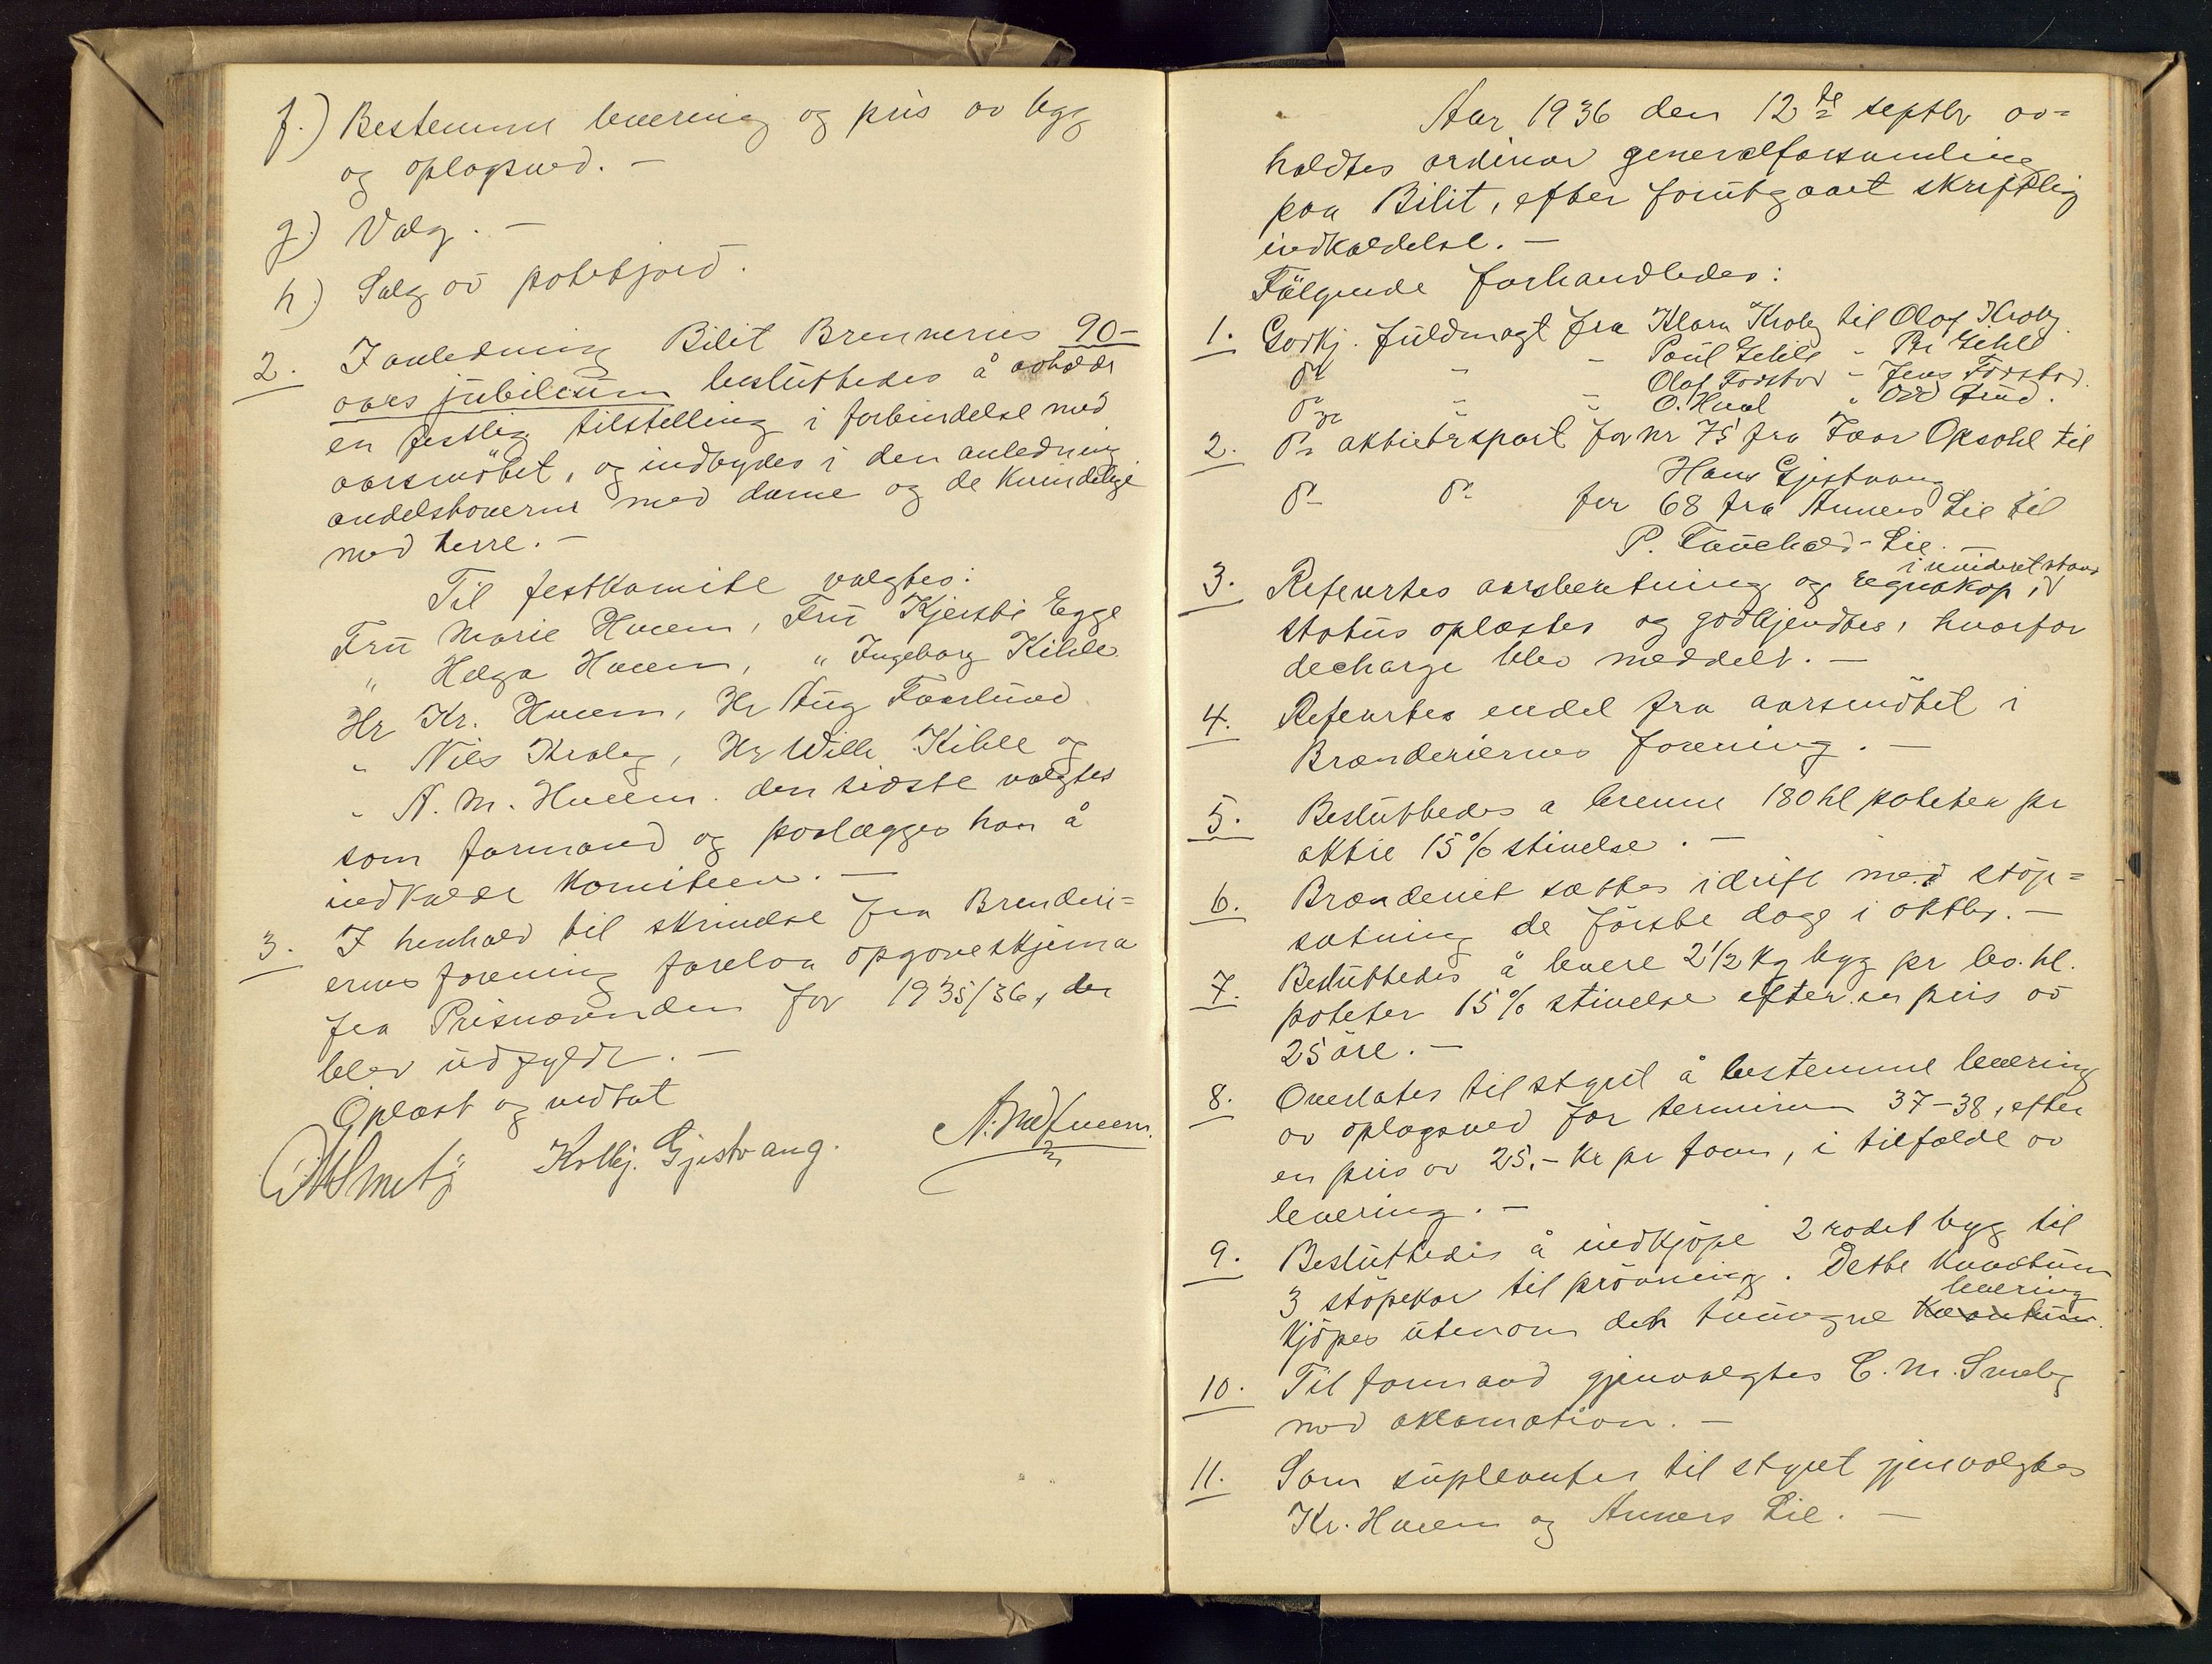 f.) Bestemme levering og pris av bygg
og oplagsved. -
g.) Valg. -
h.) Salg av potetjord.
2. I anledning Bilit Brenneries 90-
aars jubileum besluttedes å avholde
en festlig tilstelling i forbindelse med
aarsmötet, og indbydes i den anledning
andelshaverne med dame og de kvindelige
med herre. -
Til festkomite valgtes:
Fru Marie Hveem, Fru Kjersti Egge
" Helga Hveem, " Ingeborg Kihle
Hr Kr. Hveem, Hr Aug Faarlund
" Nils Kraby, Hr Wilh Kihle og
" A. M. Hveem. den sidste valgtes
som formand og paalægges han å
indkalde komiteen. -
3. I henhold til skrivelse fra Brenderi=
ernes forening forelaa opgaveskjema
fra Prisnævnden for 1935/36, der
blev udfyldt. -
Oplæst og vedtat
Kolbj. Gjestvang. A. M. Hveem.
Aar 1936 den 12te septbr av=
holdtes ordinær generalforsamling
paa Bilit, efter forutgaaet skriftlig
indkaldelse. -
Fölgende forhandledes:
1. Godkj. fuldmagt fra Klara Kraby til Olaf Kraby
Do " - Paul Gihle - Per Gihle
Do " " Olaf Forstad - Jens Forstad.
Do " " O. Hval " Odd Grud.
2. Do aktietrsport for nr 75 fra Ivar Opsahl til
Hans Gjestvang
Do Do for 68 fra Anners Lie til
P. Lie. -
3. Refertes aarsberetning og regnskap, i revideret stand
status oplæstes og godkjendtes, hvorfor
decharge blev meddelt. -
4. Refertes endel fra aarsmötet i
Brænderiernes forening. -
5. Besluttedes a brenne 180 hl poteter pr
aktie 15% stivelse. -
6. Brænderiet sættes i drift med stöp=
sætning de förste dage i oktbr. -
7. Besluttedes å levere 2 1/2 kg bygg pr lev. hl.
poteter 15% stivelse efter en pris av
25 öre. -
8. Overlates til styret å bestemme levering
av oplagsved for terminen 37-38, efter
en pris av 25.- kr pr favn, i tilfælde av
levering. -
9. Besluttedes å indkjöpe 2 radet bygg til
3 stöpekar til prövning. Dette kvantum
kjöpes utenom den tvungne kvantum levering.
10. Til formand gjenvalgtes C. M. Smeby
med aklamation. -
11. Som supleanter til styret gjenvalgtes
Kr. Hveem og Anners Lie. -